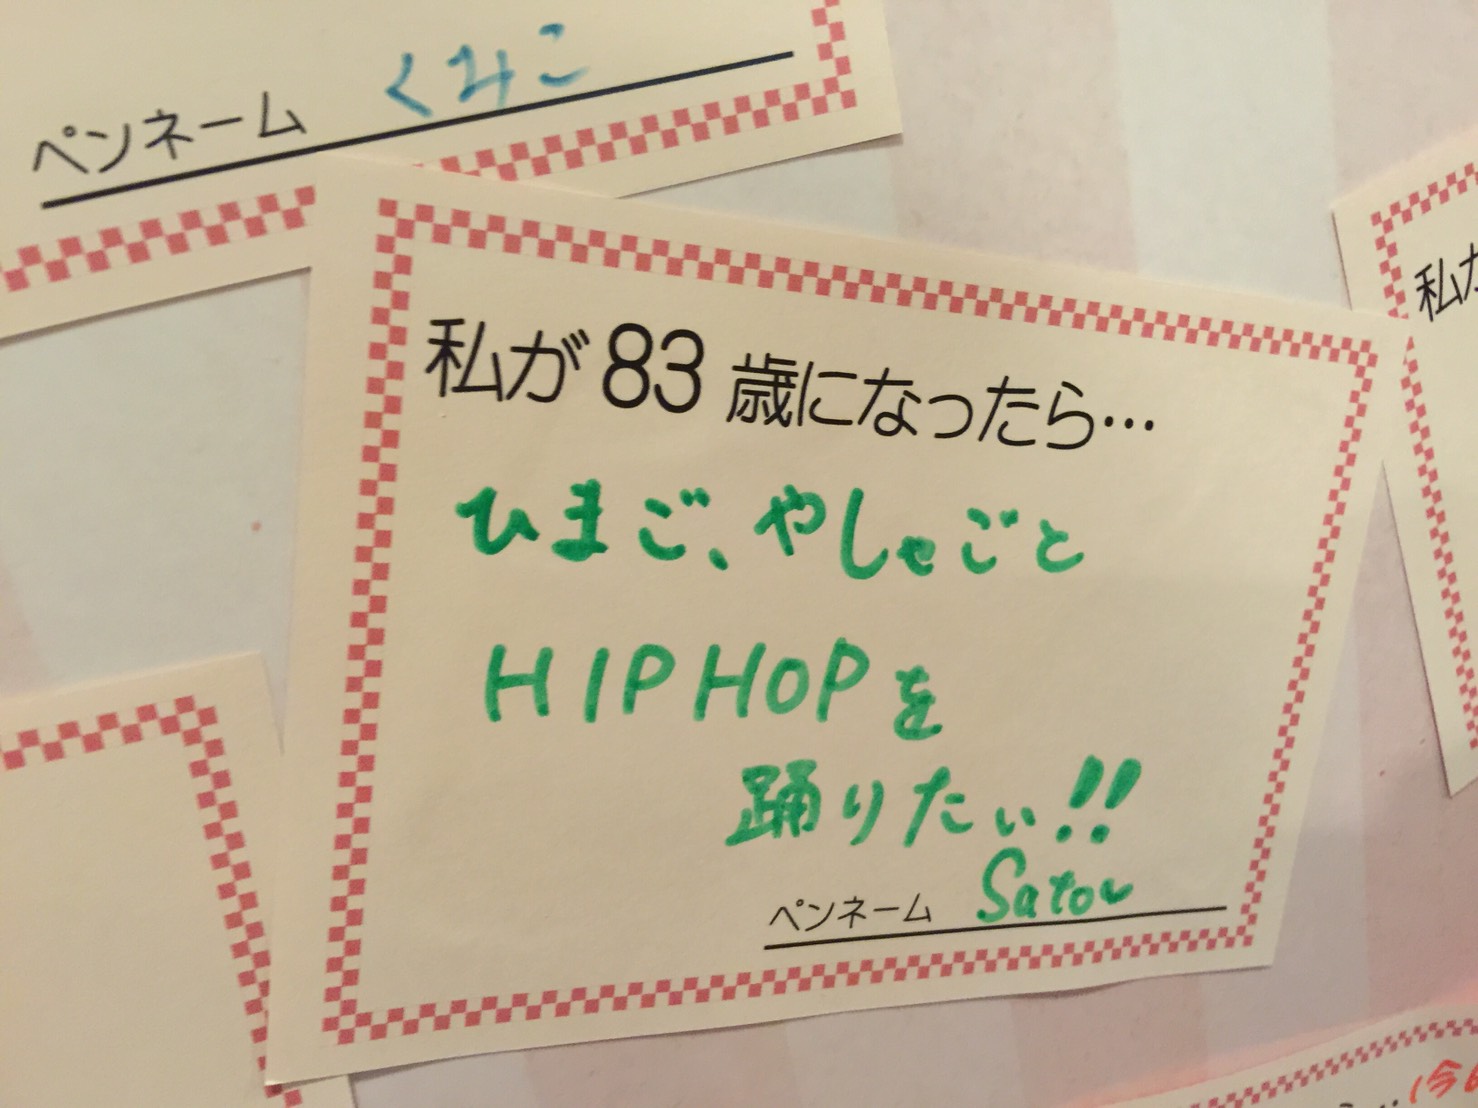 ペンネーム くみこ
私が83歳になったら…
ひまご、やしゃごと
HIPHOPを
踊りたい!!
ペンネーム Satou
私が
(今